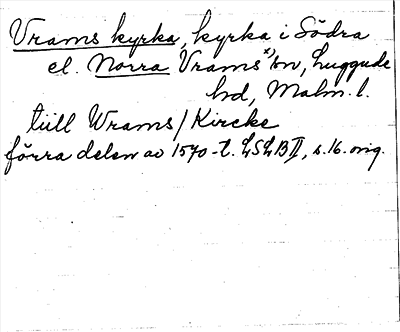 Vrams kyrka, kyrka i Södra
el. Norra Vrams x) sn, Luggude
hd, Malm. l.
tiill Wrams/Kircke
förra delen av 1570-t. LSLB II, s. 16. orig.